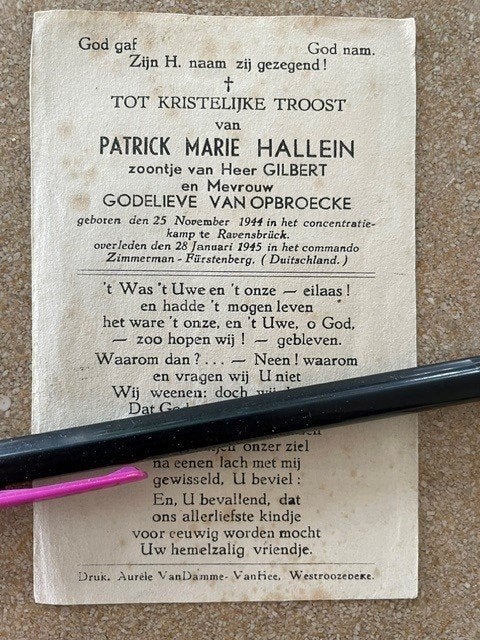 God gaf God nam.
Zijn H. naam zij gezegend!
†
TOT KRISTELIJKE TROOST
van
PATRICK MARIE HALLEIN
zoontje van Heer GILBERT
en Mevrouw
GODELIEVE VAN OPBROECKE
geboren den 25 November 1944 in het concentratie-
kamp te Ravensbrück.
overleden den 28 Januari 1945 in het commando
Zimmerman - Fürstenberg, (Duitschland.)
't Was 't Uwe en 't onze — eilaas!
en hadde 't mogen leven
het ware 't onze, en 't Uwe, o God,
— zoo hopen wij! — gebleven.
Waarom dan?... — Neen! waarom
en vragen wij U niet
Wij weenen: doch
Dat
onzer ziel
na eenen lach met mij
gewisseld, U beviel:
En, U bevallend, dat
ons allerliefste kindje
voor eeuwig worden mocht
Uw hemelzalig vriendje.
Druk. Aurèle VanDamme-VanHee, Westroozebeke.